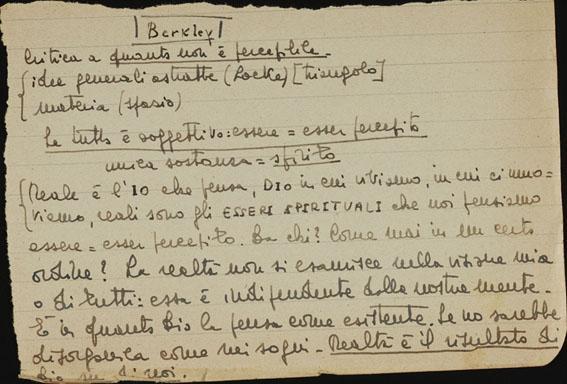 Berkley
Critica a quanto non è percepibile.
idee generali astratte (Locke) [triangolo]
materia (spazio)
Se tutto è soggettivo: essere = esser percepito
unica sostanza = spirito
Reale è l'IO che pensa, DIO in cui viviamo, in cui ci muo=
viamo, reali sono gli ESSERI SPIRITUALI che noi pensiamo
essere = esser percepito. Da chi? Come mai in un certo
ordine? La realtà non si esaurisce nella visione mia
o di tutti: essa è indipendente dalla nostra mente.
È in quanto Dio la pensa come esistente. Se no sarebbe
disorganica come nei sogni. Realtà è il risultato di
Dio su di noi.